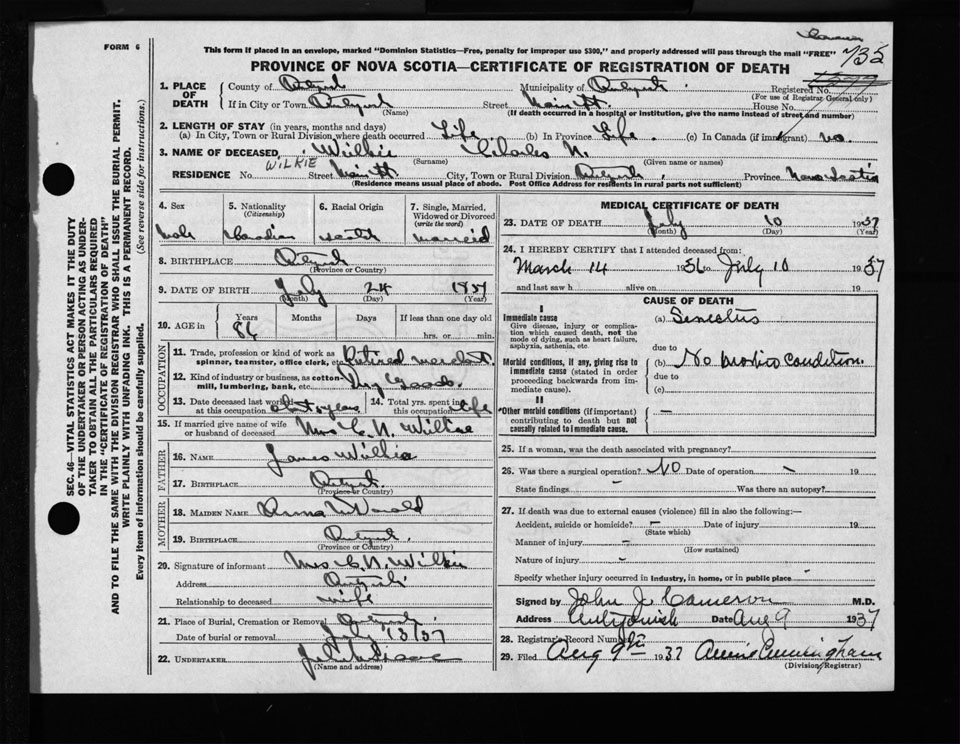 FORM 6
This form if placed in an envelope, marked "Dominion Statistics—Free, penalty for improper use $300," and properly addressed will pass through the mail "FREE"
735
PROVINCE OF NOVA SCOTIA—CERTIFICATE OF REGISTRATION OF DEATH
1. PLACE OF DEATH
County of
Municipality of
Registered No.
(For use of Registrar General only)
If in City or Town
(Name)
Street Main St.
House No.
(If death occurred in a hospital or institution, give the name instead of street and number)
2. LENGTH OF STAY (in years, months and days)
(a) In City, Town or Rural Division where death occurred Life (b) In Province Life (c) In Canada (if immigrant) no
3. NAME OF DECEASED Wilkie Charles N.
WILKIE (Surname) (Given name or names)
RESIDENCE No. Street Main St City, Town or Rural Division Province Nova Scotia
(Residence means usual place of abode. Post Office Address for residents in rural parts not sufficient)
4. Sex
Male
5. Nationality (Citizenship)
Canadian
6. Racial Origin
7. Single, Married, Widowed or Divorced (write the word)
8. BIRTHPLACE
(Province or Country)
9. DATE OF BIRTH July 24
(Month) (Day) (Year)
10. AGE in
Years Months Days If less than one day old
86 hrs. or min.
OCCUPATION
11. Trade, profession or kind of work as spinner, teamster, office clerk, etc. Retired
12. Kind of industry or business, as cotton mill, lumbering, bank, etc. Dry Goods
13. Date deceased last worked at this occupation
14. Total yrs. spent in this occupation life
15. If married give name of wife or husband of deceased Mrs C. N. Wilkie
FATHER
16. NAME James Wilkie
17. BIRTHPLACE
(Province or Country)
MOTHER
18. MAIDEN NAME
19. BIRTHPLACE
(Province or Country)
20. Signature of informant Mrs C. N. Wilkie
Address
Relationship to deceased wife
21. Place of Burial, Cremation or Removal
Date of burial or removal July 13/37
22. UNDERTAKER
(Name and address)
MEDICAL CERTIFICATE OF DEATH
23. DATE OF DEATH July 10 1937
(Month) (Day) (Year)
24. I HEREBY CERTIFY that I attended deceased from:
March 14 1936 to July 10 1937
and last saw h alive on 19
CAUSE OF DEATH
I
Immediate cause
Give disease, injury or complication which caused death, not the mode of dying, such as heart failure, asphyxia, asthenia, etc.
(a) Senectus
due to
Morbid conditions, if any, giving rise to immediate cause (stated in order proceeding backwards from immediate cause).
(b) No morbid condition.
due to
(c)
II
Other morbid conditions (if important) contributing to death but not causally related to immediate cause.
—
25. If a woman, was the death associated with pregnancy?
26. Was there a surgical operation? NO Date of operation - 19
State findings - Was there an autopsy?
27. If death was due to external causes (violence) fill in also the following:—
Accident, suicide or homicide? – Date of injury 19
(State which)
Manner of injury –
(How sustained)
Nature of injury -
Specify whether injury occurred in industry, in home, or in public place -
Signed by John J Cameron M.D.
Address Antigonish Date Aug 9 1937
28. Registrar's Record Number
29. Filed Aug 9th 1937 Annie Cunningham
(Division Registrar)
SEC. 46—VITAL STATISTICS ACT MAKES IT THE DUTY
OF THE UNDERTAKER OR PERSON ACTING AS UNDER-
TAKER TO OBTAIN ALL THE PARTICULARS REQUIRED
IN THE "CERTIFICATE OF REGISTRATION OF DEATH"
AND TO FILE THE SAME WITH THE DIVISION REGISTRAR WHO SHALL ISSUE THE BURIAL PERMIT.
WRITE PLAINLY WITH UNFADING INK. THIS IS A PERMANENT RECORD.
Every item of information should be carefully supplied. (See reverse side for instructions.)